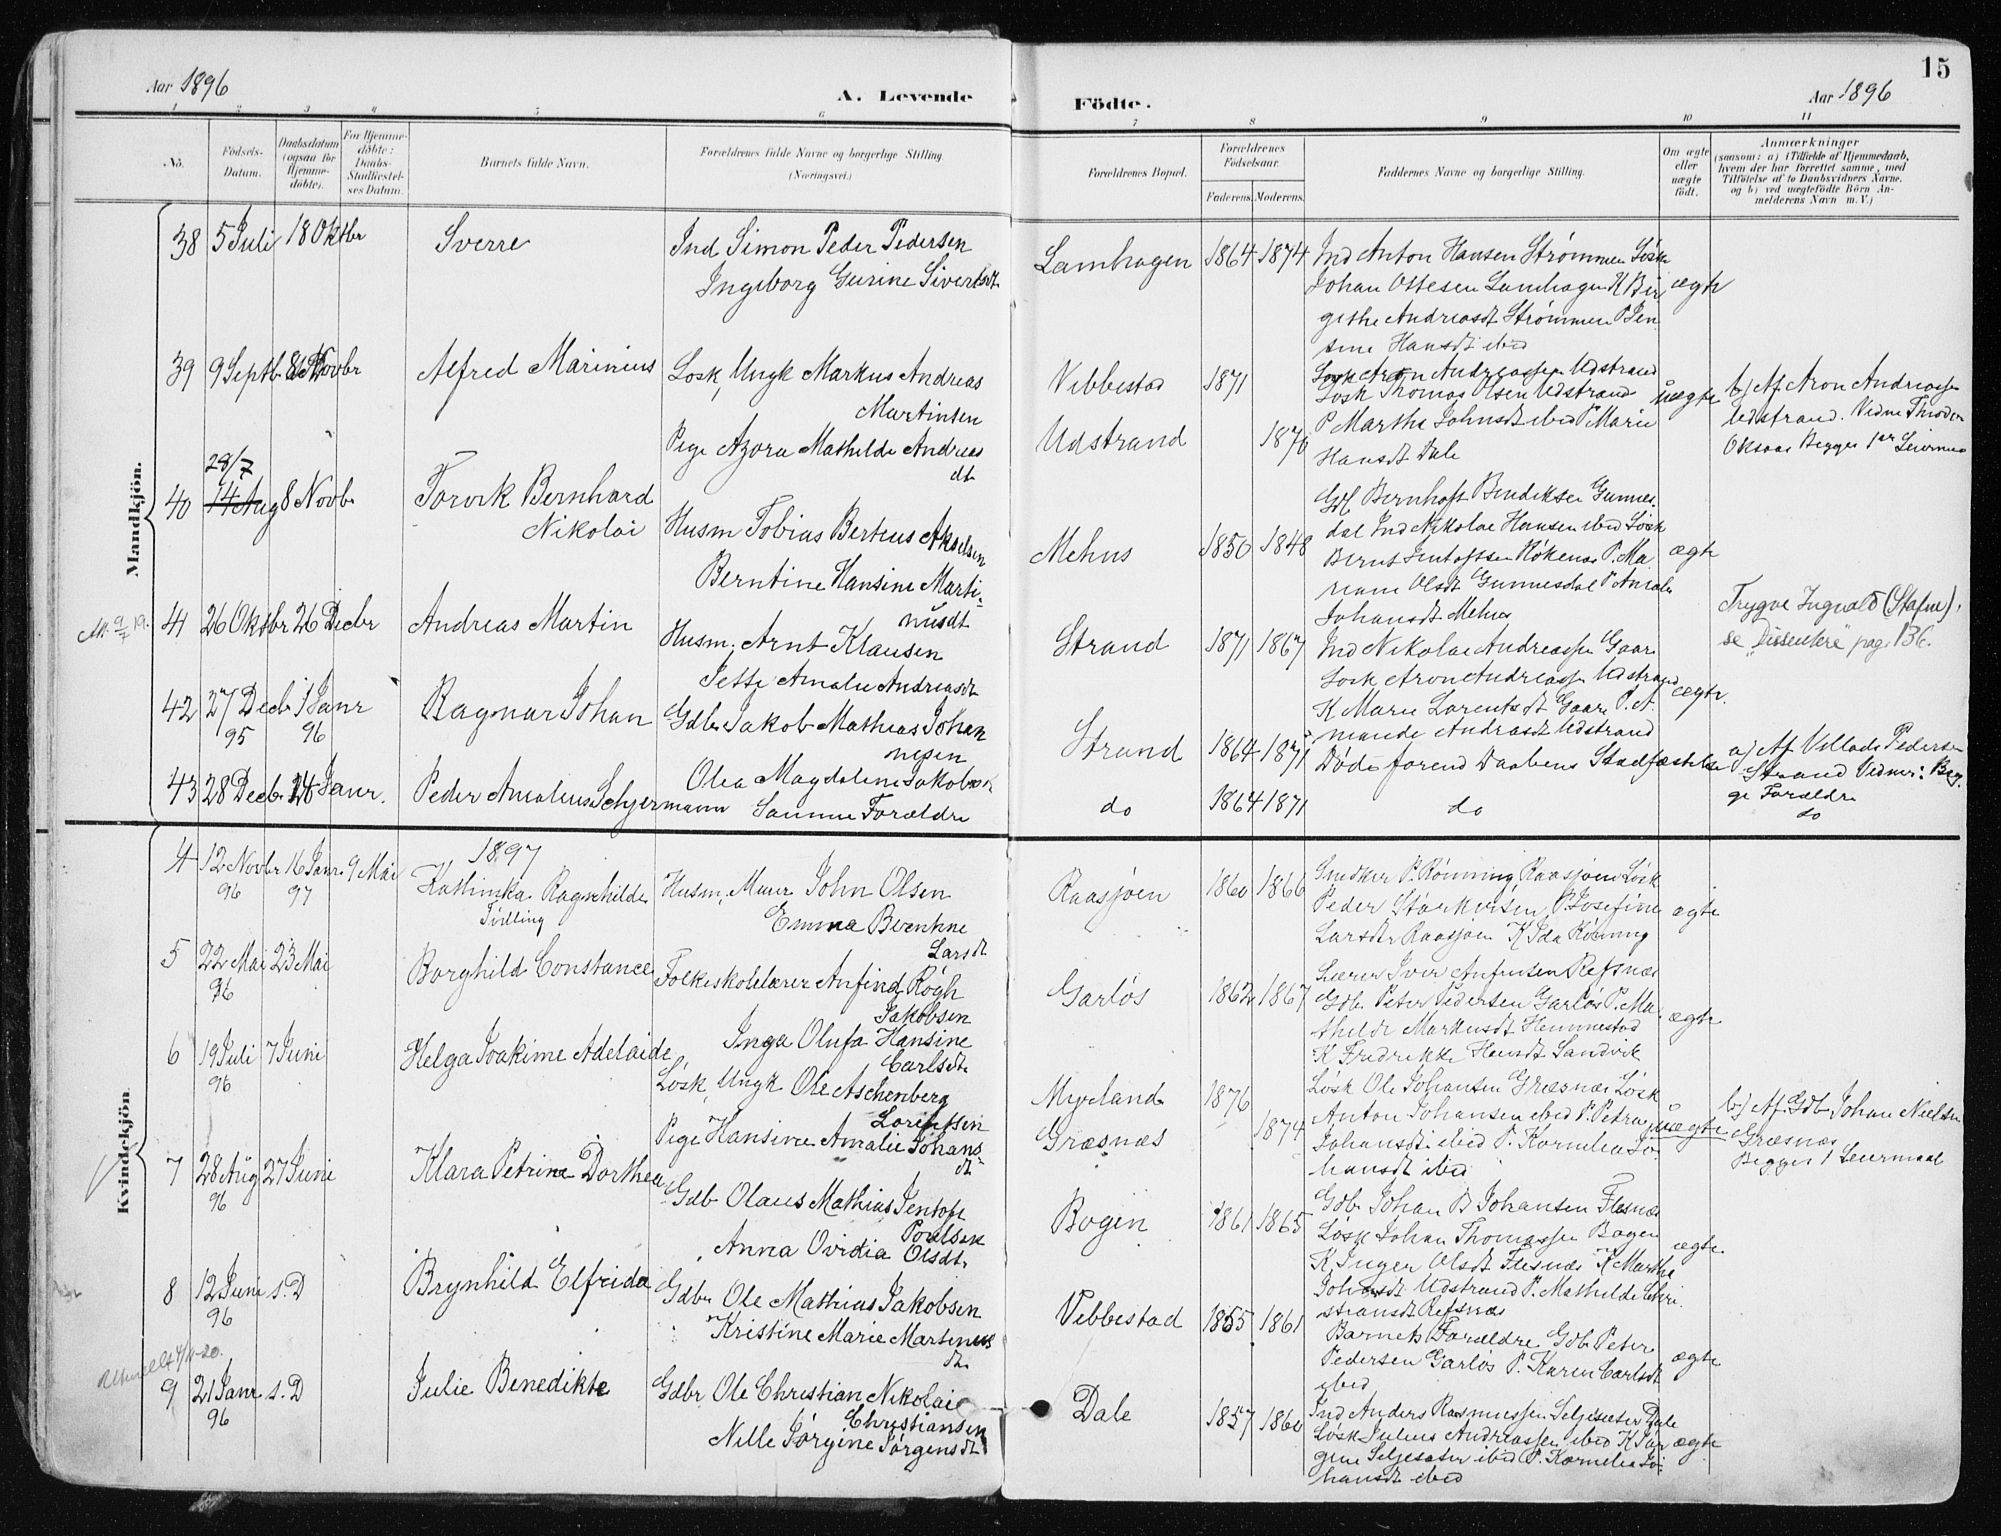 15
Aar 1896
A. Levende
Födte.
Aar 1896
1 2 3 4 5 6 7 8 9 10 11
No.
Födsels-
Datum.
Daabsdatum
(ogsaa för
Hjemme-
döbte).
For Hjemme-
döbte:
Daabs-
Stadfæstel-
ses Datum.
Barnets fulde Navn.
Forældrenes fulde Navne og borgerlige Stilling
(Næringsvei.)
Forældrenes Bopæl.
Forældrenes
Födselsaar.
Faderens. Moderens.
Faddernes Navne og borgerlige Stilling.
Om ægte
eller
uægte
födt.
Anmærkninger
(saasom: a) i Tilfælde af Hjemmedaab,
hvem der har forrettet samme, med
Tilföielse af to Daabsvidners Navne,
og b) ved uægtefödte Börn An-
melderens Navn m. V.)
Mandkjön.
38 5 Juli 18 Oktbr Sverre
Ind Simon Peder Pedersen
Ingeborg Gurine Sivertsdt
Lamhagen 1864 1874
Ind Anton Hansen Strømmen Løsk
Johan Ottesen Lamhagen K Bir
gethe Andreasdt Strømmen P Jen
sine Hansdt ibid
ægte
39 9 Septb 8 Novbr Alfred Marinius
Løsk, Ungk Markus Andreas
Martinsen
Pige Azora Mathilde Andreas
dt
Vebbestad 1871
Udstrand 1870
Løsk Aron Andreassen Udstrand
Løsk Thomas Olsen Udstrand
P Martha Johnsdt ibid P. Marie
Hansdt Dale
uægte
b) Af Aron Andreasse
Udstrand. Vidne Theodor
Oksaas Begges 1ste Leiermaal
40 28/7
14 Aug 8 Novb Torvik Bernhard
Nikolai
Husm Tobias Berteus Akselsen
Berntine Hansine Marti-
nusdt
Mehus 1850 1848
Gdb Bernhoft Bendiksen Gunnes
dal Ind Nikolai Hansen ibid Løsk
Bernt Jentoftsen Høkenes P. Ma
riane Olsdt Gunnesdal P. Amalie
Johansdt Mehus
ægte
41 26 Oktbr 26 Decbr Andreas Martin
Husm. Arnt Klausen
Jette Amalie Andreasdt
Strand 1871 1867
Ind Nikolai Andreassen Gaare
Løsk Aron Andreasse Udstrand
K Marie Lorentsdt Gaare P. A
mande Andreasdt Udstrand
ægte.
Trygve Ingvald (Stafne),
se "Dissentere" pag. 136.
42 27 Decb 1 Janr Ragnar Johan
95 96
Gdbr Jakob Mathias Johan
nesen
Olea Magdalene Jakobsdt
Strand 1864 1871
Døde forend Daabens Stadfæstelse
a) Af Villads Pedersen
Strand Vidner: Beg-
ge Forældre
43 28 Decb 24 Janr. Peder Amalius Schjermann
Samme Forældre
do 1864 1871 do do
Kvindekjön
1897
4 12 Novbr 16 Janr. 9 Mai Kathinka Ragnhilde
96 97 Tvilling
Husm, Murer John Olsen
Emma Berntine
Larsdt
Raasjøen 1860 1866
Snedker P. Rønning Raasjøen Løsk
Peder Størkersen P. Josefine
Larsdt Raasjøen K Ida Rønning
ægte
5 22 Mai 23 Mai Borghild Constance
96
Folkeskolelærer Anfind Rögh
Jakobsen
Inga Olufa Hansine
Carlsdt
Garløs 1862 1867
Lærer Iver Anfinsen Refsnes
Gdb. Peter Pedersen Garløs P. Ma
thilde Markusdt Hemmestad
K Fredrikke Hansdt Sandvik
ægte
6 19 Juli 7 Juni Helga Joakime Adelaide
96
Løsk, Ungk Ole Aschenberg
Lorentsen
Pige Hansine Amalie Johans-
dt
Myrland 1876
Græsnæs 1874
Løsk Ole Johansen Græsnæs Løsk
Anton Johansen ibid P. Petra
Johansdt ibid P. Kornelia Jo
hansdt ibid
uægte
b) Af Gdb Johan Nielsen
Græsnæs
Begges 1 Leiermaal
7 28 Aug 27 Juni Klara Petrine Dorthea
96
Gdb Olaus Mathias Jentoft
Poulsen
Anna Ovidia Olsdt.
Bogen 1861 1865
Gdb Johan B Johansen Flesnæs
Løsk Johan Thomassen Bogen
K. Inger Olsdt Flesnæs K Martha
Johansdt Udstrand P. Mathilde Chri
stiansdt Refsnæs
ægte
8 12 Juni s. D Brynhild Elfrida
96
Gdbr Ole Mathias Jakobsen
Kristine Marie Martinus
dt.
Vebbestad 1855 1861
Barnets Forældre Gdb Peter
Pedersen Garløs P. Karen Carlsdt
ibid
ægte
9 21 Janr s. D Julie Benedikte
96
Gdbr Ole Christian Nikolai
Christiansen
Nille Jørgine Jørgensdt
Dale 1857 1860
Ind Anders Rasmussen Seljesæter Dale
Løsk Julius Andreassen ibid K Jør
gine Seljesæter ibid P. Kornelia Jo-
hansdt ibid
ægte